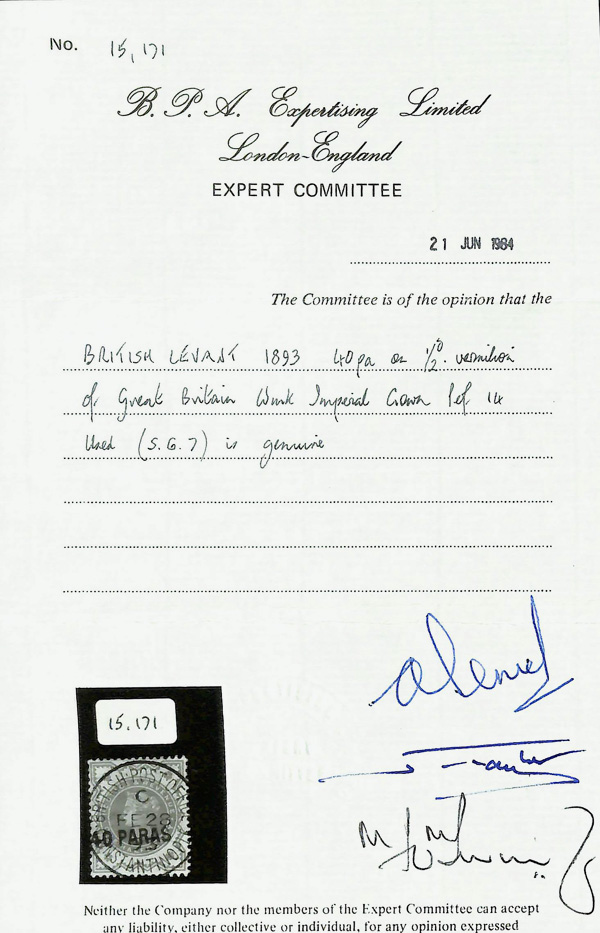 No. 15,171
B. P. A. Expertising Limited
London-England
EXPERT COMMITTEE
21 JUN 1984
The Committee is of the opinion that the
BRITISH LEVANT 1893 40pa on ½D. vermilion
of Great Britain Wmk Imperial Crown Perf. 14
Used (S.G.7) is genuine
15,171
BRITISH POST OFFICE
C
FE 28
93
40 PARAS
CONSTANTINOPLE
Neither the Company nor the members of the Expert Committee can accept
any liability, either collective or individual, for any opinion expressed